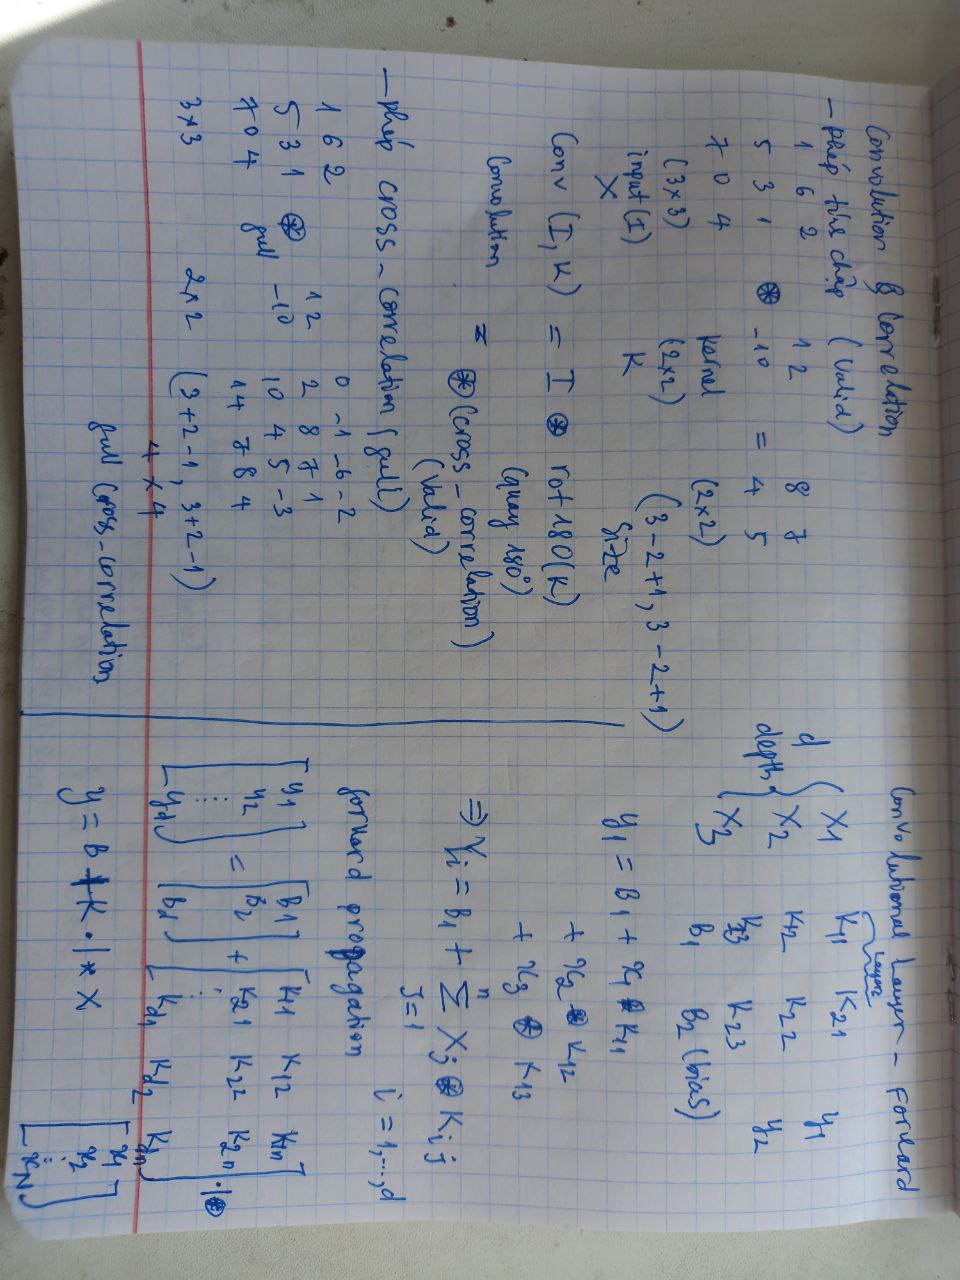 Convolution & Correlation
- phép tính chập (Valid)
1 6 2 1 2 8 7
5 3 1 ⊛ -1 0 = 4 5
7 0 4 kernel (2x2)
(3x3) (2x2) (3-2+1, 3-2+1)
input (I) K Size
X
Conv (I, K) = I ⊛ rot180(K)
(quay 180°)
Convolution = ⊛ (cross-correlation)
(Valid)
- phép cross-correlation (full)
1 6 2 0 -1 -6 -2
5 3 1 ⊛ 1 2 2 8 7 1
full -1 0 10 4 5 -3
7 0 4 14 7 8 4
3x3 2x2 (3+2-1, 3+2-1)
4 x 4
full cross-correlation
Convolutional Layer - Forward
Layers
X1 K11 K21 y1
d depth X2 K12 K22 y2
X3 K13 K23
B1 B2 (bias)
y1 = B1 + x1 ⊛ K11
+ x2 ⊛ K12
+ x3 ⊛ K13
⇒ Yi = B1 + Σ Xj ⊛ Kij
n
J=1
i = 1,...,d
forward propagation
[y1 [B1 [K11 K12 K1n
y2 = B2 + K21 K22 K2n ·|⊛
..... : 
yd] Bd] Kd1 Kd2 Kdn]
[x1
x2
:
xN]
y = B + K ·|* X